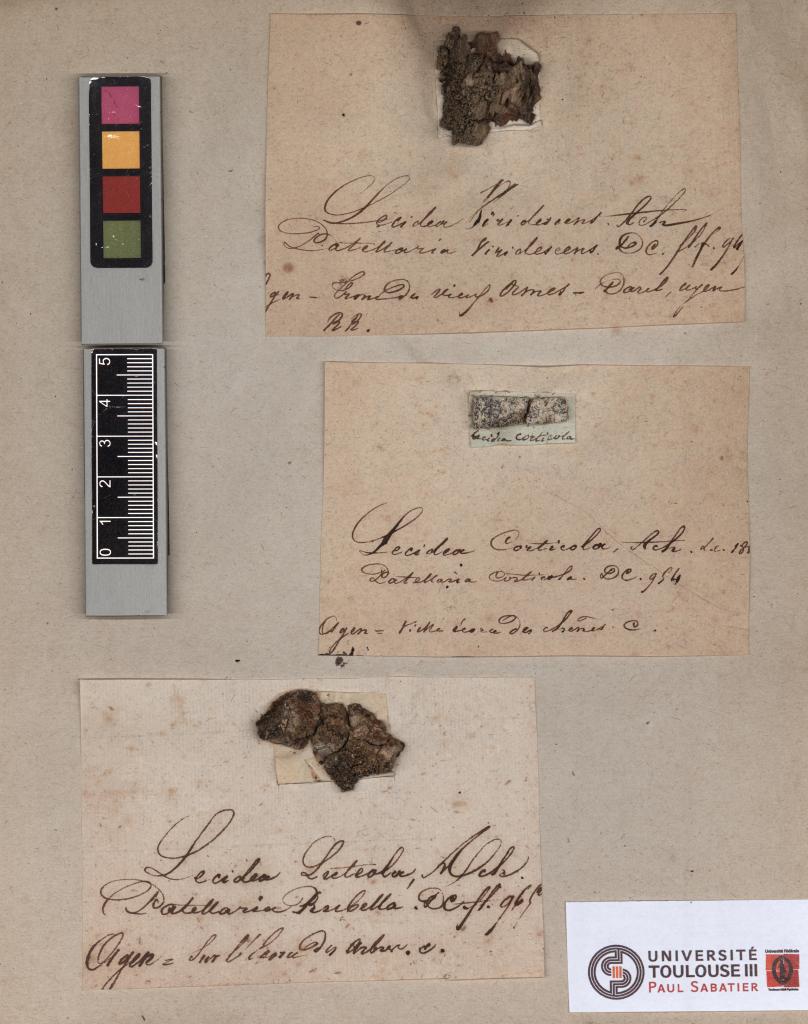 Lecidea Viridescens. Ach
Patellaria Viridescens. DC. flf. 94
gen = Tronc du vieux Ormes =
RR.
0 1 2 3 4 5
Lecidea corticola
Lecidea Corticola, Ach. 18
Patellaria Corticola. DC. 954
Agen = Vielle écorce des chênes. C.
Lecidea Luteola, Ach.
Patellaria Rubella. DC. fl. 965
Agen = Sur l'écorce des arbres. c.
UNIVERSITÉ
TOULOUSE III
PAUL SABATIER